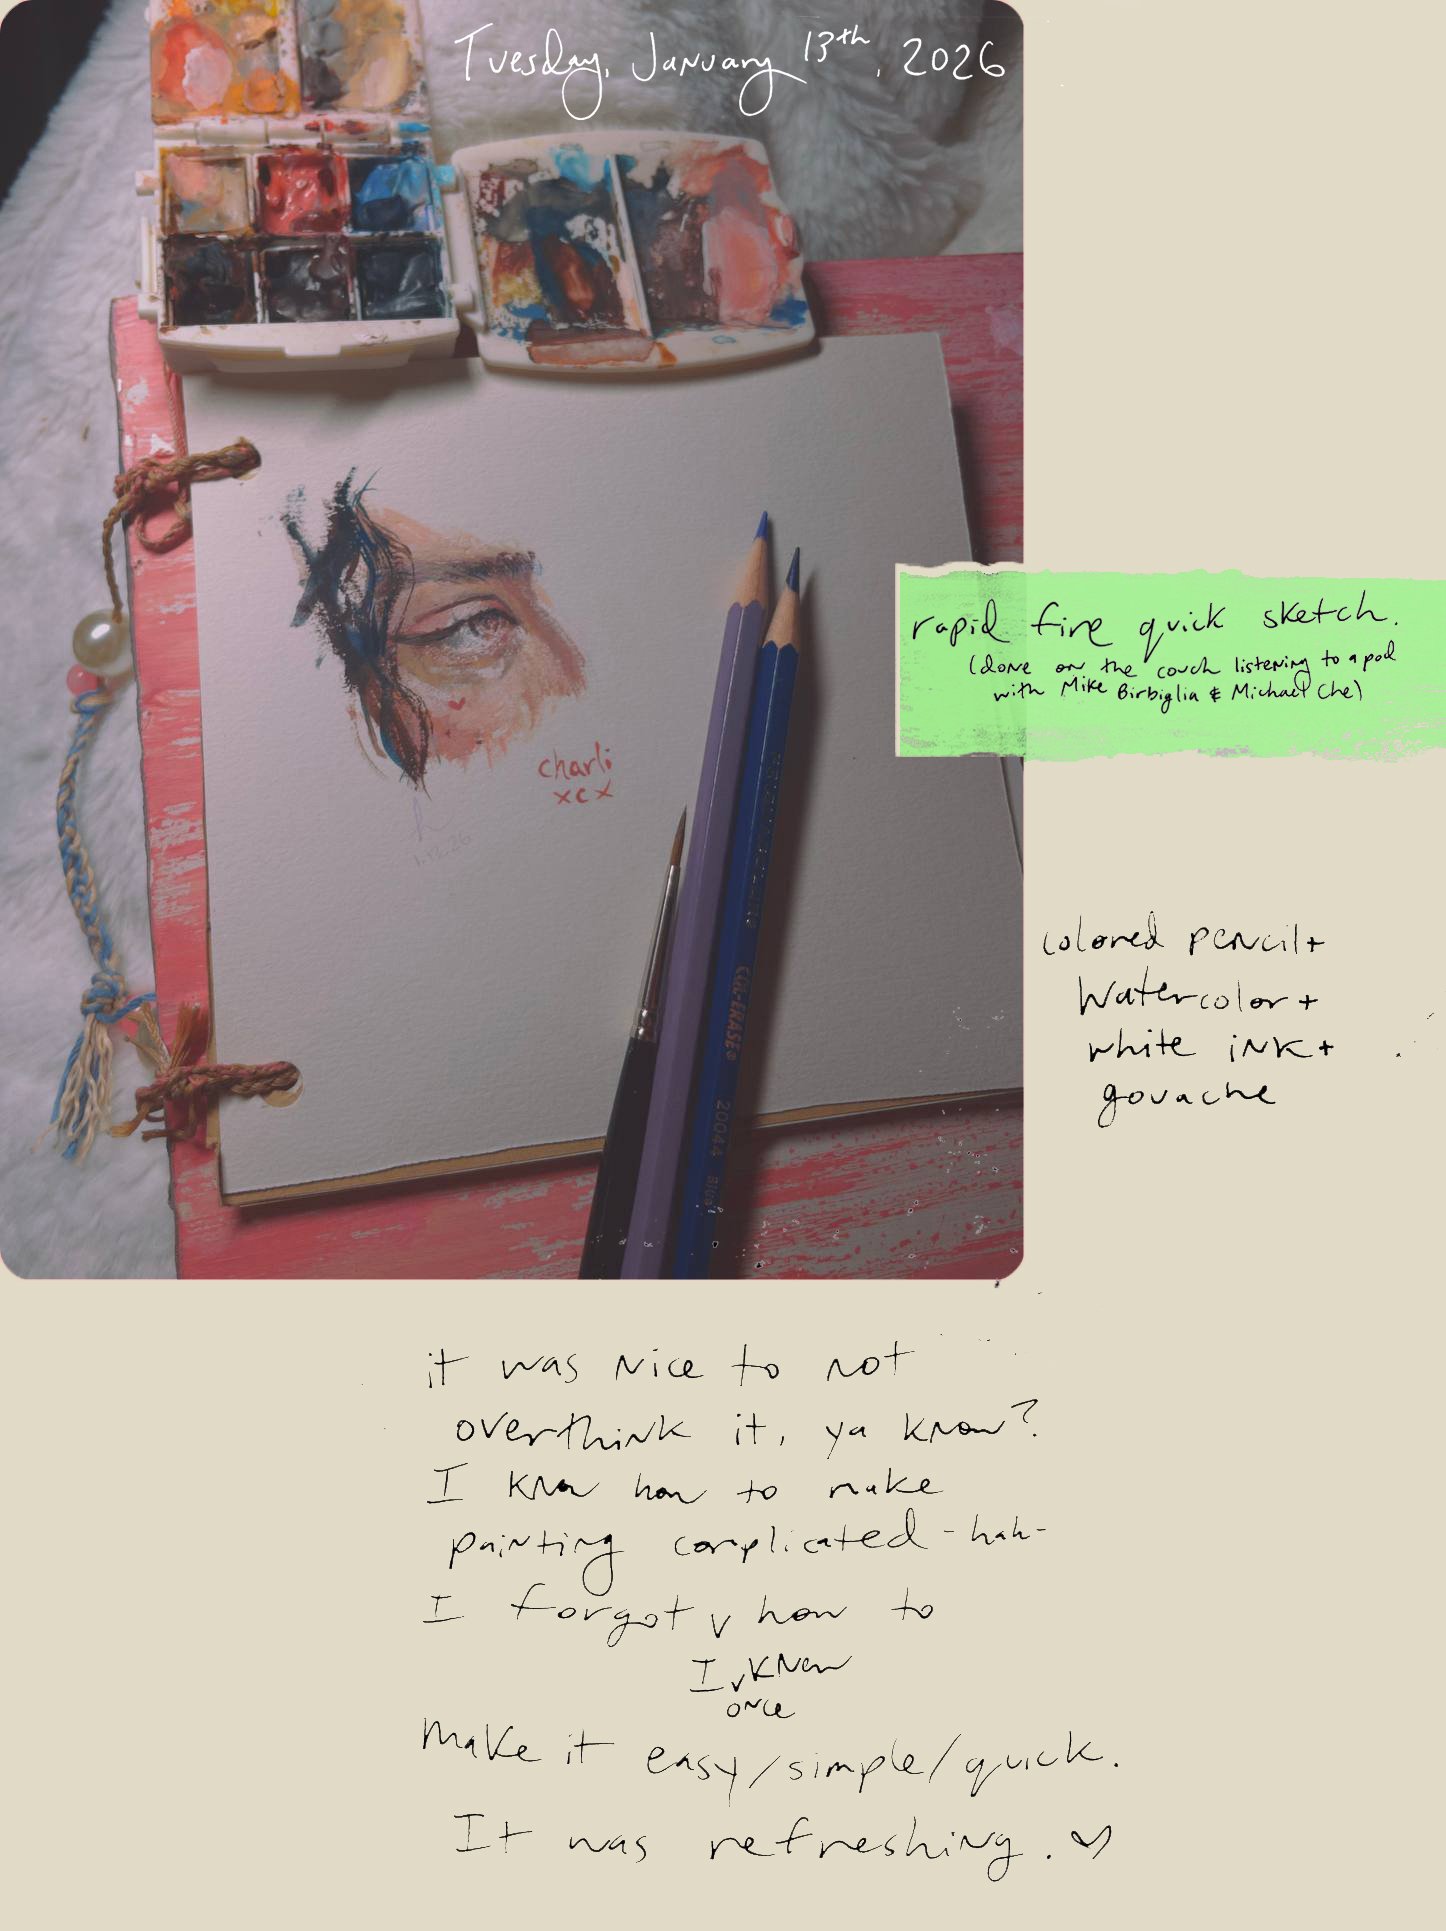 Tuesday, January 13th, 2026
charli
xcx
1.12.26
COL-ERASE®
20044 Blue
rapid fire quick sketch.
(done on the couch listening to a pod
with Mike Birbiglia & Michael Che)
colored pencil +
watercolor +
white ink +
gouache
it was nice to not
overthink it, ya know?
I know how to make
painting complicated -hah-
I forgot v how to
I v knew
once
make it easy/simple/quick.
It was refreshing. ♡